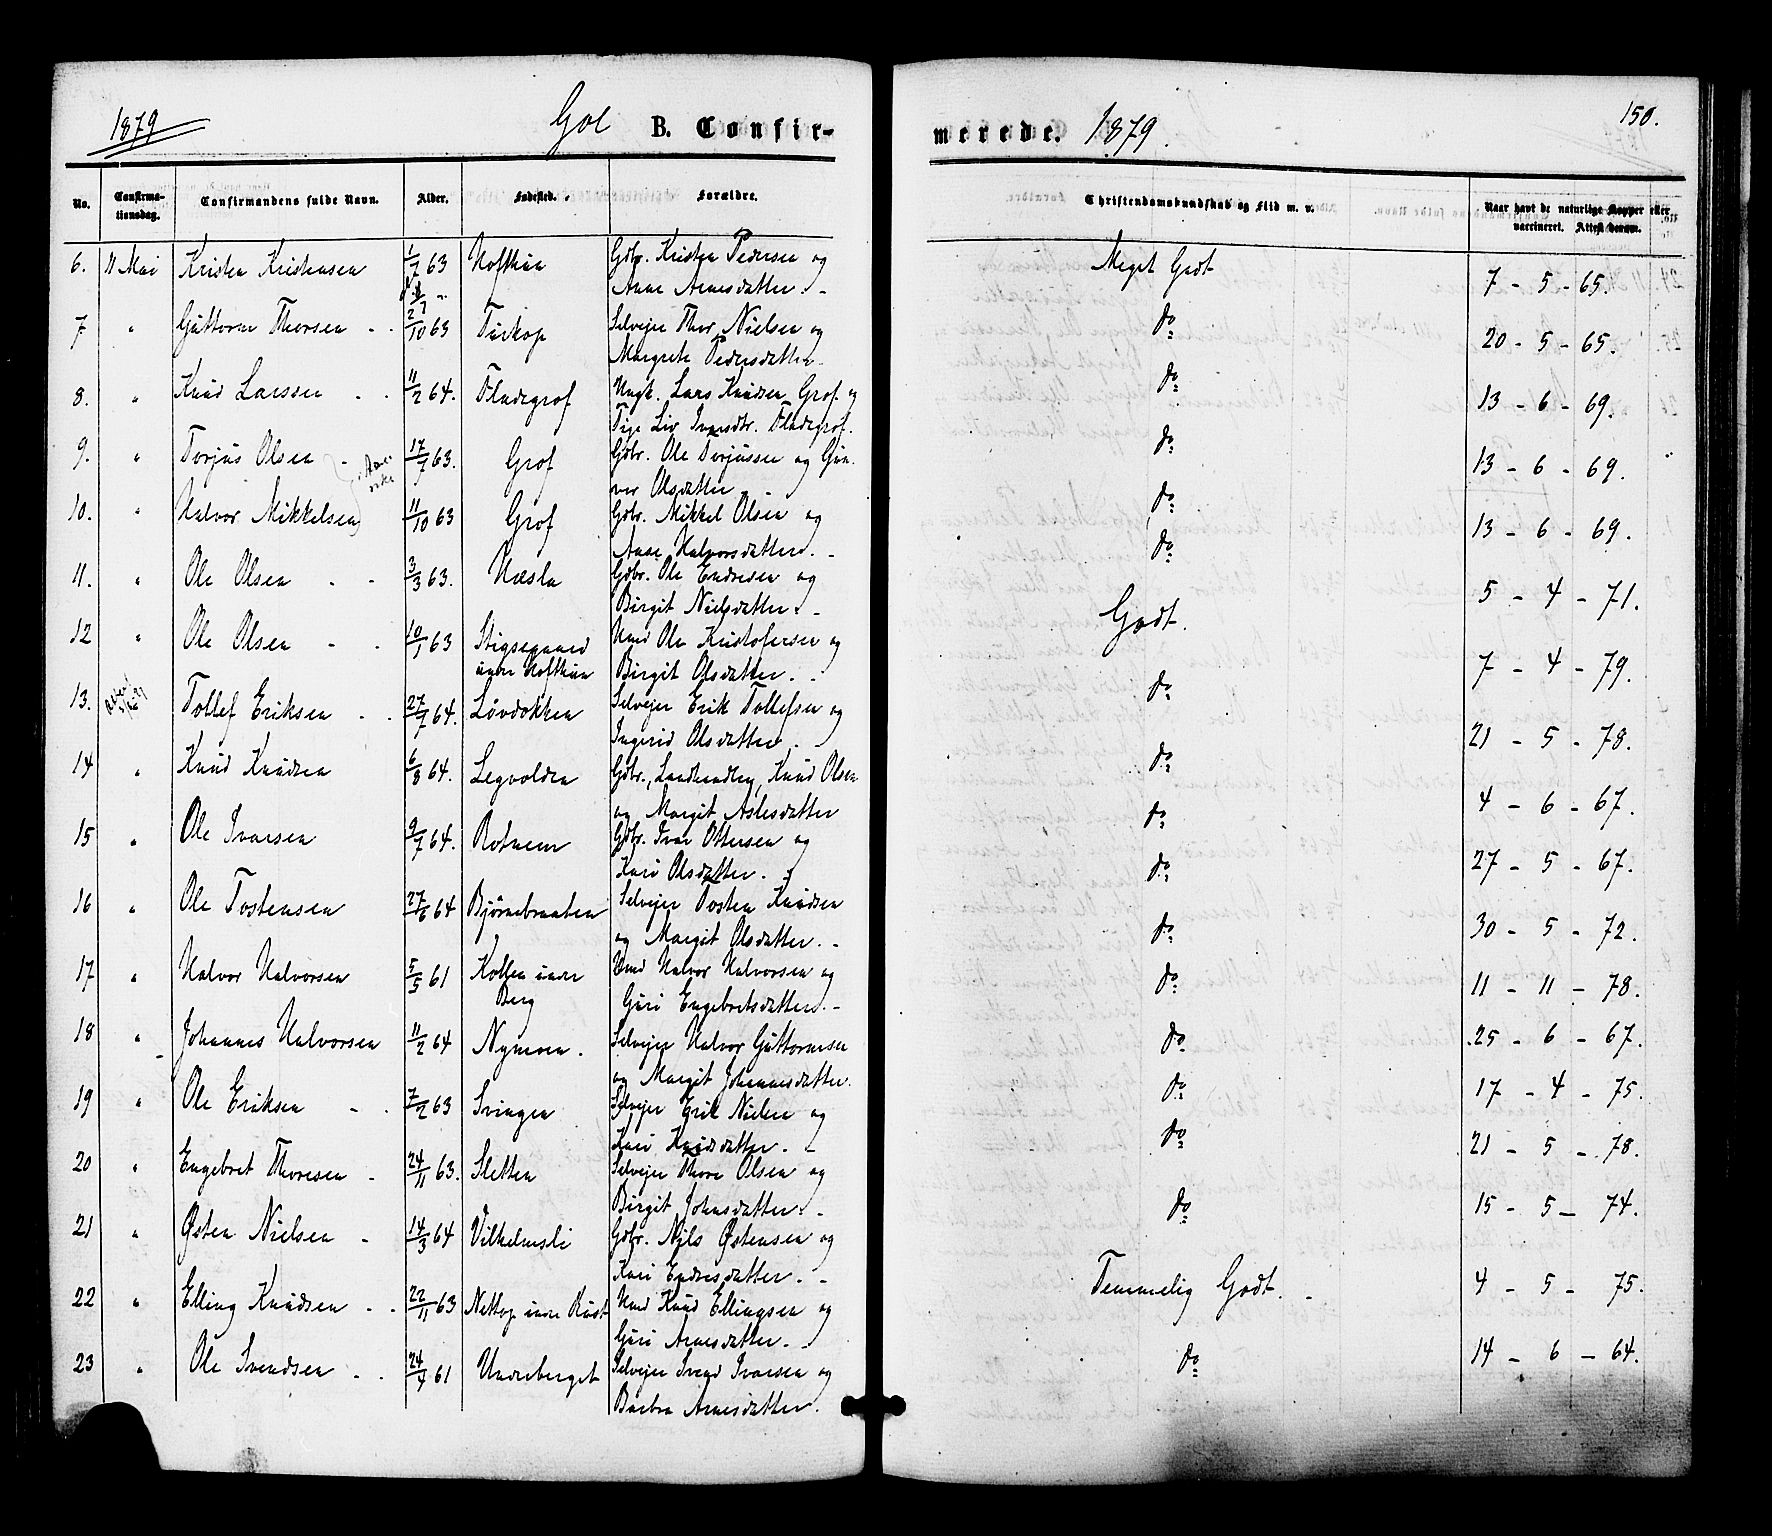 1879 Gol B. Confirmerede. 1879. 150.
No. Confirmationsdag. Confirmandens fulde Navn. Alder. Fødested. Forældre. Christendomskundskab og Flid m. v. Naar havt de naturlige Kopper eller vaccineret. Attest derom.
6. 11 Mai Kristen Kristensen 1/7 63 Hofthun Gdbr. Kristen Pedersen og Meget Godt 7 - 5 - 65.
Anne Arnesdatter. -
7 " Guttorm Thorsen - - 27/10 63 Tuskop Selvejer Thor Nielsen og do 20 - 5 - 65.
Margrete Pedersdatter.
8. " Knud Larsen - . 11/2 64. Fladegrof Ungk. Lars Knudsen Grof og do 13 - 6 - 69.
Pige Liv Ivarsdtr. Fladegrof.
9. " Torjus Olsen - 17/7 63. Grof Gdbr. Ole Torjussen og Gun- do 13 - 6 - 69.
ver Olsdatter
10. " Halvor Mikkelsen 11/10 63 Grof Gdbr. Mikkel Olsen og do 13 - 6 - 69.
Anne Halvorsdatter. -
11. " Ole Olsen - - 3/3 63. Hæsla Gdbr. Ole Endresen og do 5 - 4 - 71.
Birgit Nielsdatter. -
12 " Ole Olsen - . 10/1 63 Stigsegaard Hmd Ole Kristofersen og Godt. 7 - 4 - 79.
under Hofthun Birgit Olsdatter. -
13. Tollef Eriksen - . 27/7 64. Løvdokken Selvejer Erik Tollefsen og do 21 - 5 - 78.
Ingerid Olsdatter. -
14 " Knud Knudsen 6/8 64. Legvolden Gdbr., Landhandler, Knud Olsen do 4 - 6 - 67.
og Margit Aslesdatter
15 " Ole Ivarsen 9/7 64. Rotneim Gdbr. Ivar Ottersen og do 27 - 5 - 67.
Kari Olsdatter. -
16 " Ole Tostensen 27/6 64 Bjørnebraaten Selvejer Tosten Knudsen do 30 - 5 - 72.
og Margit Olsdatter. -
17 " Halvor Halvorsen 5/5 61 Kollen under Hmd Halvor Halvorsen og do 11 - 11 - 78.
Berg Guri Engebretsdatter. -
18 " Johannes Halvorsen 11/2 64 Nymoen. Selvejer Halvor Guttormsen do 25 - 6 - 67.
og Margit Johannesdatter.
19 " Ole Eriksen - . 7/2 63 Svingen Selvejer Erik Nielsen og do 17 - 4 - 75.
Kari Knudsdatter. -
20 " Engebret Thoresen - 24/11 63. Sletten Selvejer Thore Olsen og do 21 - 5 - 78.
Birgit Johnsdatter. -
21 " Østen Nielsen - 14/3 64 Vilhelmsli Gdbr. Nils Østensen og do 15 - 5 - 74.
Kari Endresdatter. -
22 " Elling Knudsen - . 22/11 63 Nettop under Rust Hmd Knud Ellingsen og Temmelig Godt. - 4 - 5 - 75.
Guri Arnesdatter. -
23 " Ole Svendsen - . 24/4 61 Underberget Selvejer Svend Ivarsen og do 14 - 6 - 64.
Barbra Arnesdatter.